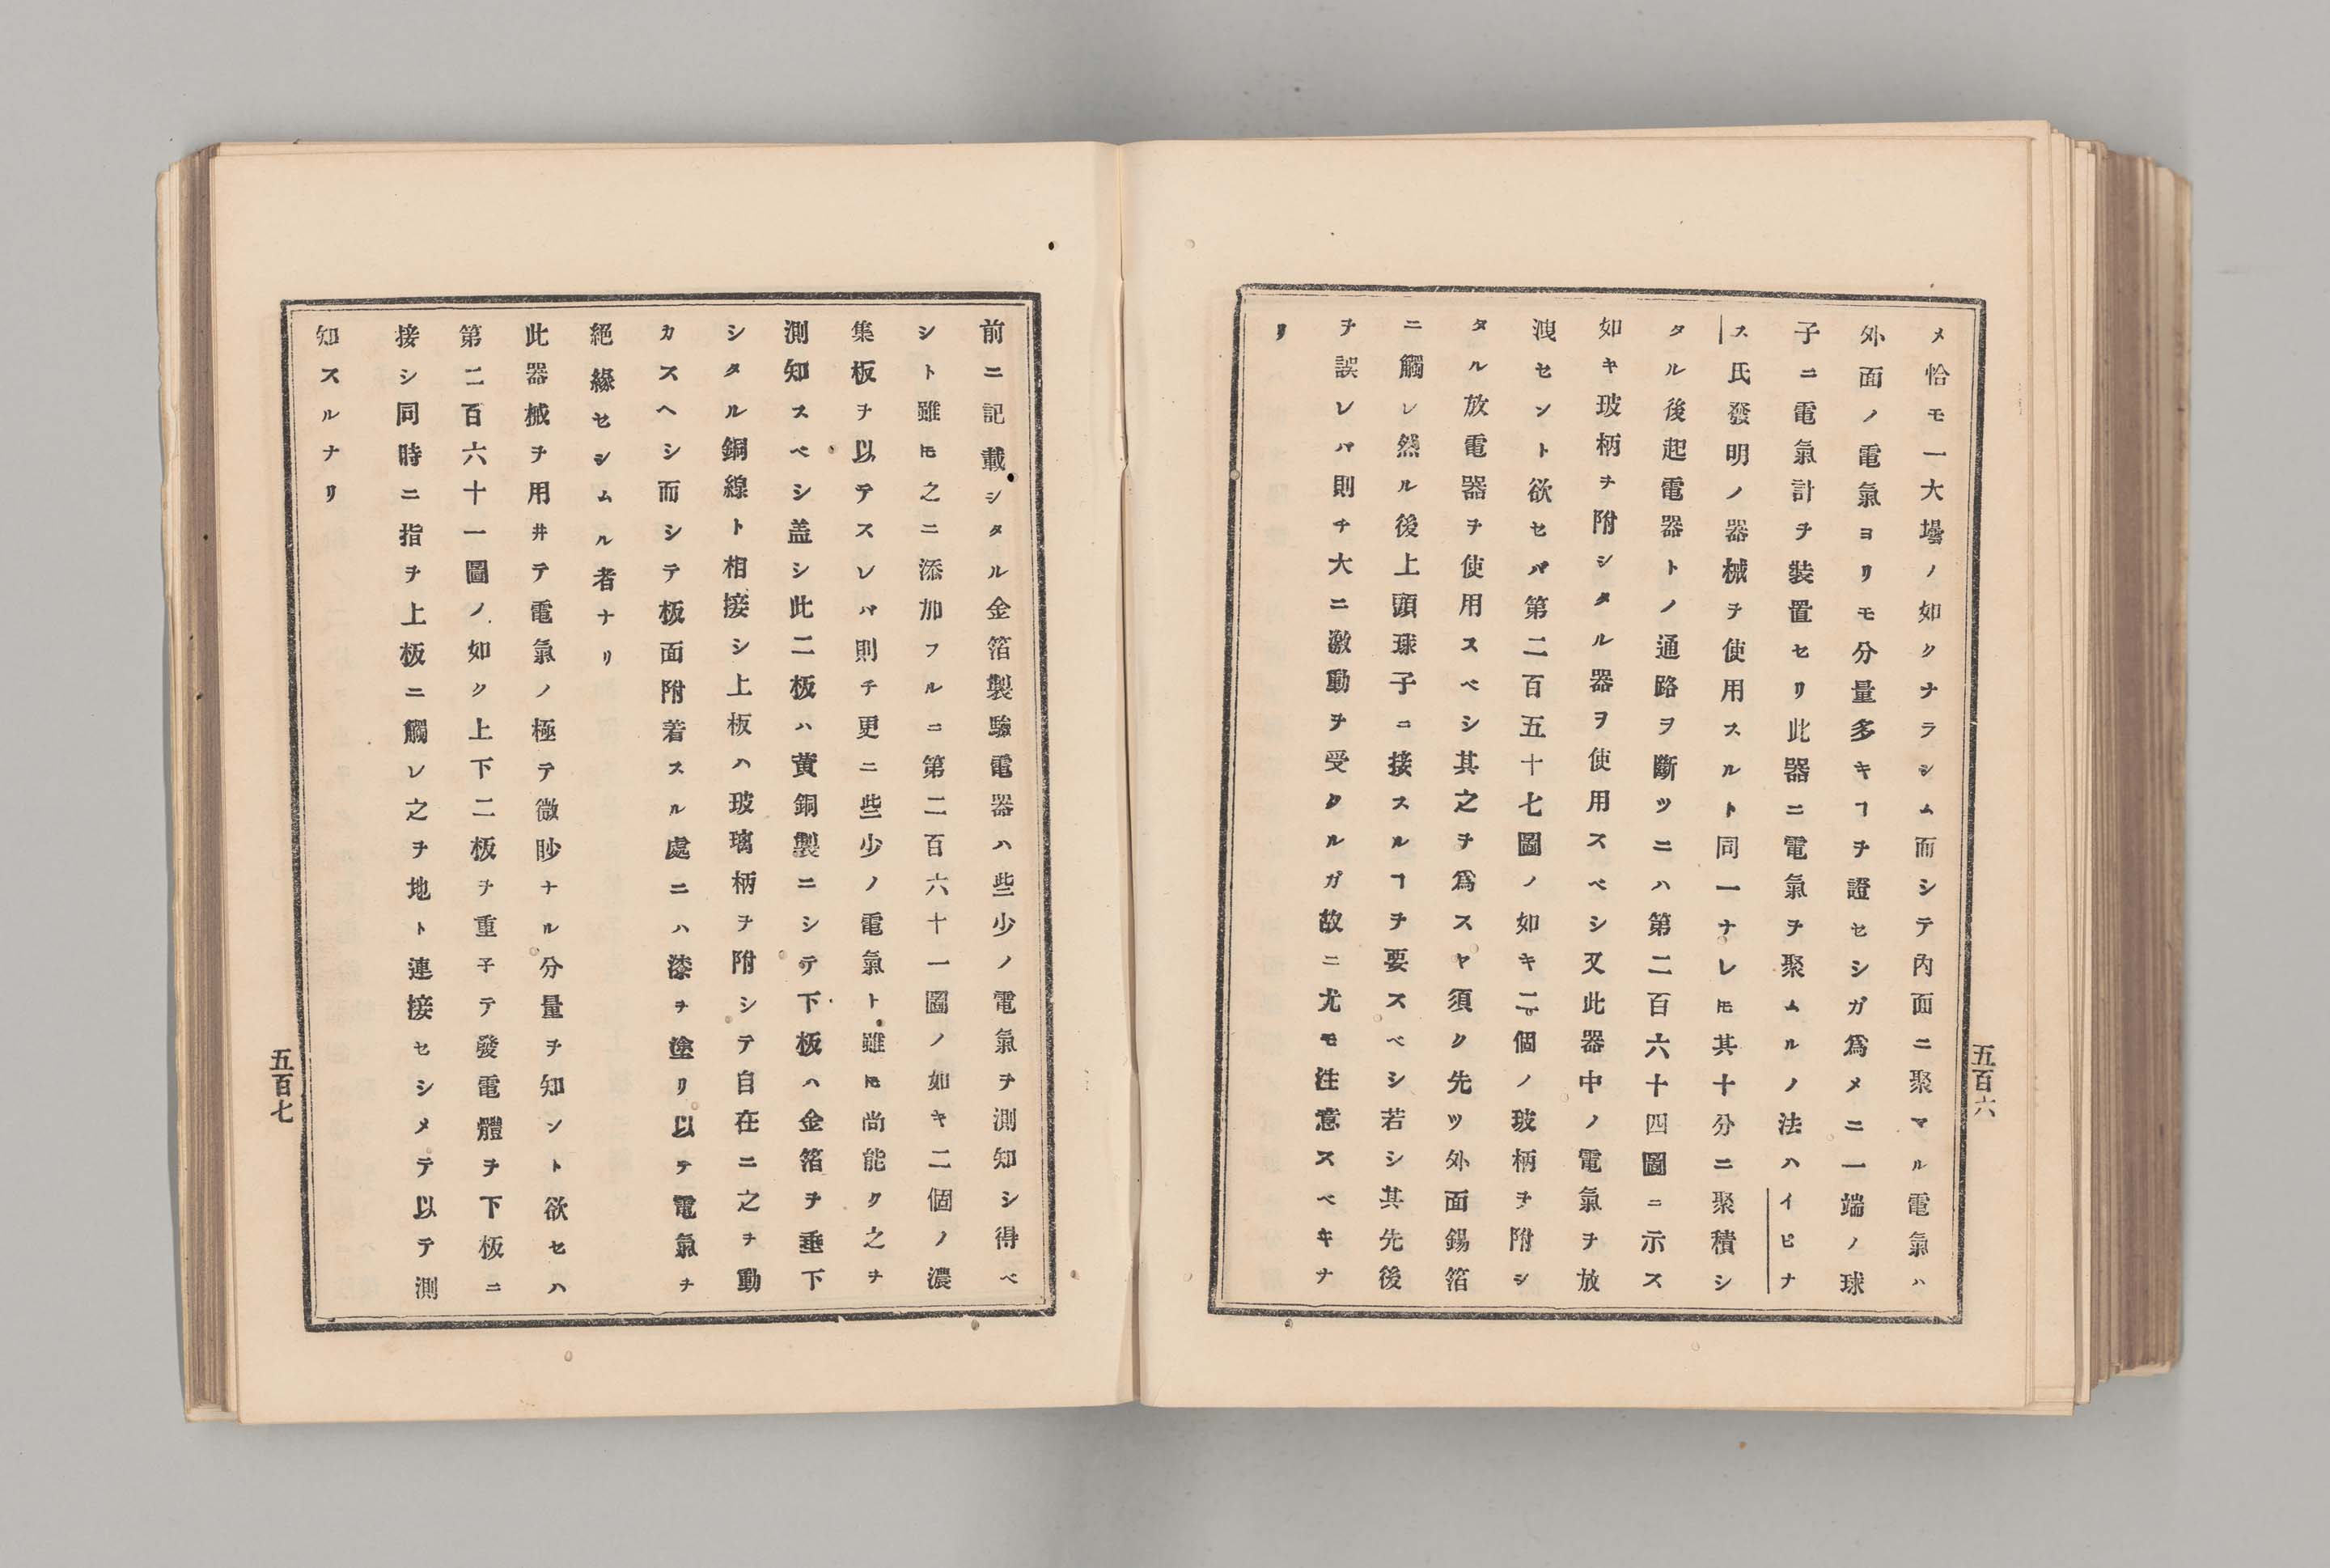 メ恰モ一大場ノ如クナラシム而シテ內面ニ聚マル電氣ハ
外面ノ電氣ヨリモ分量多キヿヲ證セシガ爲メニ一端ノ球
子ニ電氣計ヲ裝置セリ此器ニ電氣ヲ聚ムルノ法ハイピナ
ス氏發明ノ器械ヲ使用スルト同一ナレ𪜈其十分ニ聚積シ
タル後起電器トノ通路ヲ斷ツニハ第二百六十四圖ニ示ス
如キ玻柄ヲ附シタル器ヲ使用スベシ又此器中ノ電氣ヲ放
洩セント欲セバ第二百五十七圖ノ如キ二個ノ玻柄ヲ附シ
タル放電器ヲ使用スベシ其之ヲ爲スヤ須ク先ツ外面錫箔
ニ觸レ然ル後上頭球子ニ接スルヿヲ要スベシ若シ其先後
ヲ誤レバ則チ大ニ激動ヲ受クルガ故ニ尤モ注意スベキナ
リ
五百六
前ニ記載シタル金箔製驗電器ハ些少ノ電氣ヲ測知シ得ベ
シト雖𪜈之ニ添加フルニ第二百六十一圖ノ如キ二個ノ濃
集板ヲ以テスレバ則チ更ニ些少ノ電氣ト雖𪜈尚能ク之ヲ
測知スベシ盖シ此二板ハ黄銅製ニシテ下板ハ金箔ヲ垂下
シタル銅線ト相接シ上板ハ玻璃柄ヲ附シテ自在ニ之ヲ動
カスヘシ而シテ板面附着スル處ニハ漆ヲ塗リ以テ電氣ヲ
絕緣セシムル者ナリ
此器械ヲ用井テ電氣ノ極テ微眇ナル分量ヲ知ント欲セハ
第二百六十一圖ノ如ク上下二板ヲ重子テ發電體ヲ下板ニ
接シ同時ニ指ヲ上板ニ觸レ之ヲ地ト連接セシメテ以テ測
知スルナリ
五百七